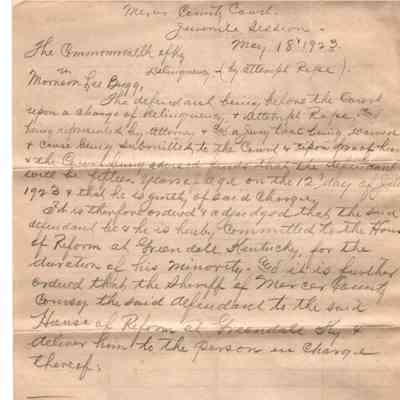 Mercer County Court.
Juvenile Session.
May 18" 1923.
The Commonwealth of Ky
vs Delinquency - (by attempt Rape).
Morrison Lee Bugg,
The defendant being before the Court
upon a charge of delinquency, & attempt Rape, &
being represented by attorney & a jury trial being waived
& cause being submitted to the Court & upon proof heard
& the Court being advised finds that the defendant
will be fifteen years of age on the 12" day of July
1923 & that he is guilty of said charge.
It is therefore ordered & adjudged that the said
defendant be & he is hereby Committed to the House
of Reform at Greendale Kentucky, for the
duration of his minority. & it is further
ordered that the Sheriff of Mercer County
Convey the said defendant to the said
House of Reform at Greendale Ky &
deliver him to the person in charge
thereof.